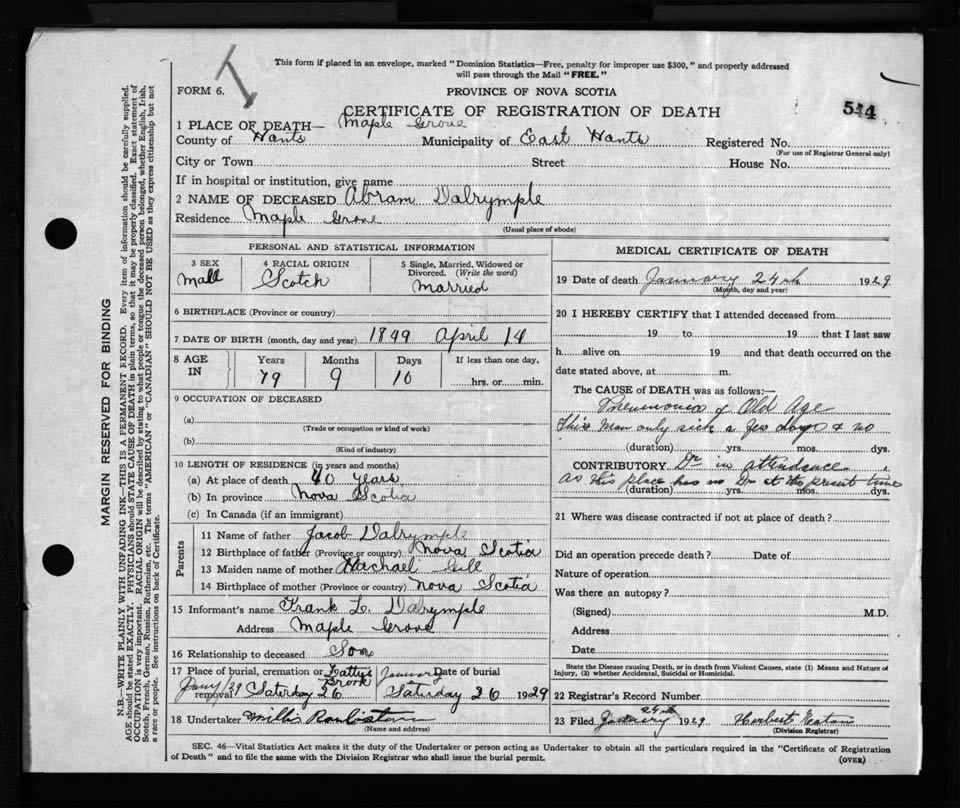 This form if placed in an envelope, marked "Dominion Statistics—Free, penalty for improper use $300," and properly addressed
will pass through the Mail "FREE."
FORM 6.
PROVINCE OF NOVA SCOTIA
CERTIFICATE OF REGISTRATION OF DEATH
544
1 PLACE OF DEATH— Maple Grove
County of Hants Municipality of East Hants Registered No.
(For use of Registrar General only)
City or Town Street House No.
If in hospital or institution, give name
2 NAME OF DECEASED Abram Dalrymple
Residence Maple Grove
(Usual place of abode)
PERSONAL AND STATISTICAL INFORMATION
3 SEX 4 RACIAL ORIGIN 5 Single, Married, Widowed or
Divorced. (Write the word)
Mall Scotch Married
6 BIRTHPLACE (Province or country)
7 DATE OF BIRTH (month, day and year) 1849 April 14
8 AGE IN Years Months Days If less than one day,
79 9 10 hrs. or min.
9 OCCUPATION OF DECEASED
(a)
(Trade or occupation or kind of work)
(b)
(Kind of industry)
10 LENGTH OF RESIDENCE (in years and months)
(a) At place of death 40 years
(b) In province Nova Scotia
(c) In Canada (if an immigrant)
Parents
11 Name of father Jacob Dalrymple
12 Birthplace of father (Province or country) Nova Scotia
13 Maiden name of mother Rachael
14 Birthplace of mother (Province or country) Nova Scotia
15 Informant's name Frank L. Dalrymple
Address Maple Grove
16 Relationship to deceased Son
17 Place of burial, cremation or Brook Date of burial
removal Jany/29 Saterday 26 January Saturday 26 1929
18 Undertaker Willis
(Name and address)
MEDICAL CERTIFICATE OF DEATH
19 Date of death January 24th 1929
(Month, day and year)
20 I HEREBY CERTIFY that I attended deceased from
19 to 19 that I last saw
h alive on 19 and that death occurred on the
date stated above, at m.
The CAUSE of DEATH was as follows:—
Pneumonia & Old Age
This Man only sick a few days & no
(duration) yrs. mos. dys.
CONTRIBUTORY Dr in attendance
As this place has no Dr at the present time
(duration) yrs. mos. dys.
21 Where was disease contracted if not at place of death?
Did an operation precede death? Date of
Nature of operation
Was there an autopsy?
(Signed) M.D.
Address
Date
State the Disease causing Death, or in death from Violent Causes, state (1) Means and Nature of
Injury, (2) whether Accidental, Suicidal or Homicidal.
22 Registrar's Record Number
23 Filed January 24th 1929 Herbert
(Division Registrar)
SEC. 46—Vital Statistics Act makes it the duty of the Undertaker or person acting as Undertaker to obtain all the particulars required in the "Certificate of Registration
of Death" and to file the same with the Division Registrar who shall issue the burial permit.
(OVER)
MARGIN RESERVED FOR BINDING
N.B.—WRITE PLAINLY WITH UNFADING INK—THIS IS A PERMANENT RECORD. Every item of information should be carefully supplied.
AGE should be stated EXACTLY. PHYSICIANS should STATE CAUSE OF DEATH in plain terms, so that it may be properly classified. Exact statement of
OCCUPATION is very important. RACIAL ORIGIN will be described by stating to what people or tongue the deceased person belonged, whether English, Irish,
Scotch, French, German, Russian, Ruthenian, etc. The terms "AMERICAN" or "CANADIAN" SHOULD NOT BE USED as they express citizenship but not
a race or people. See instructions on back of Certificate.